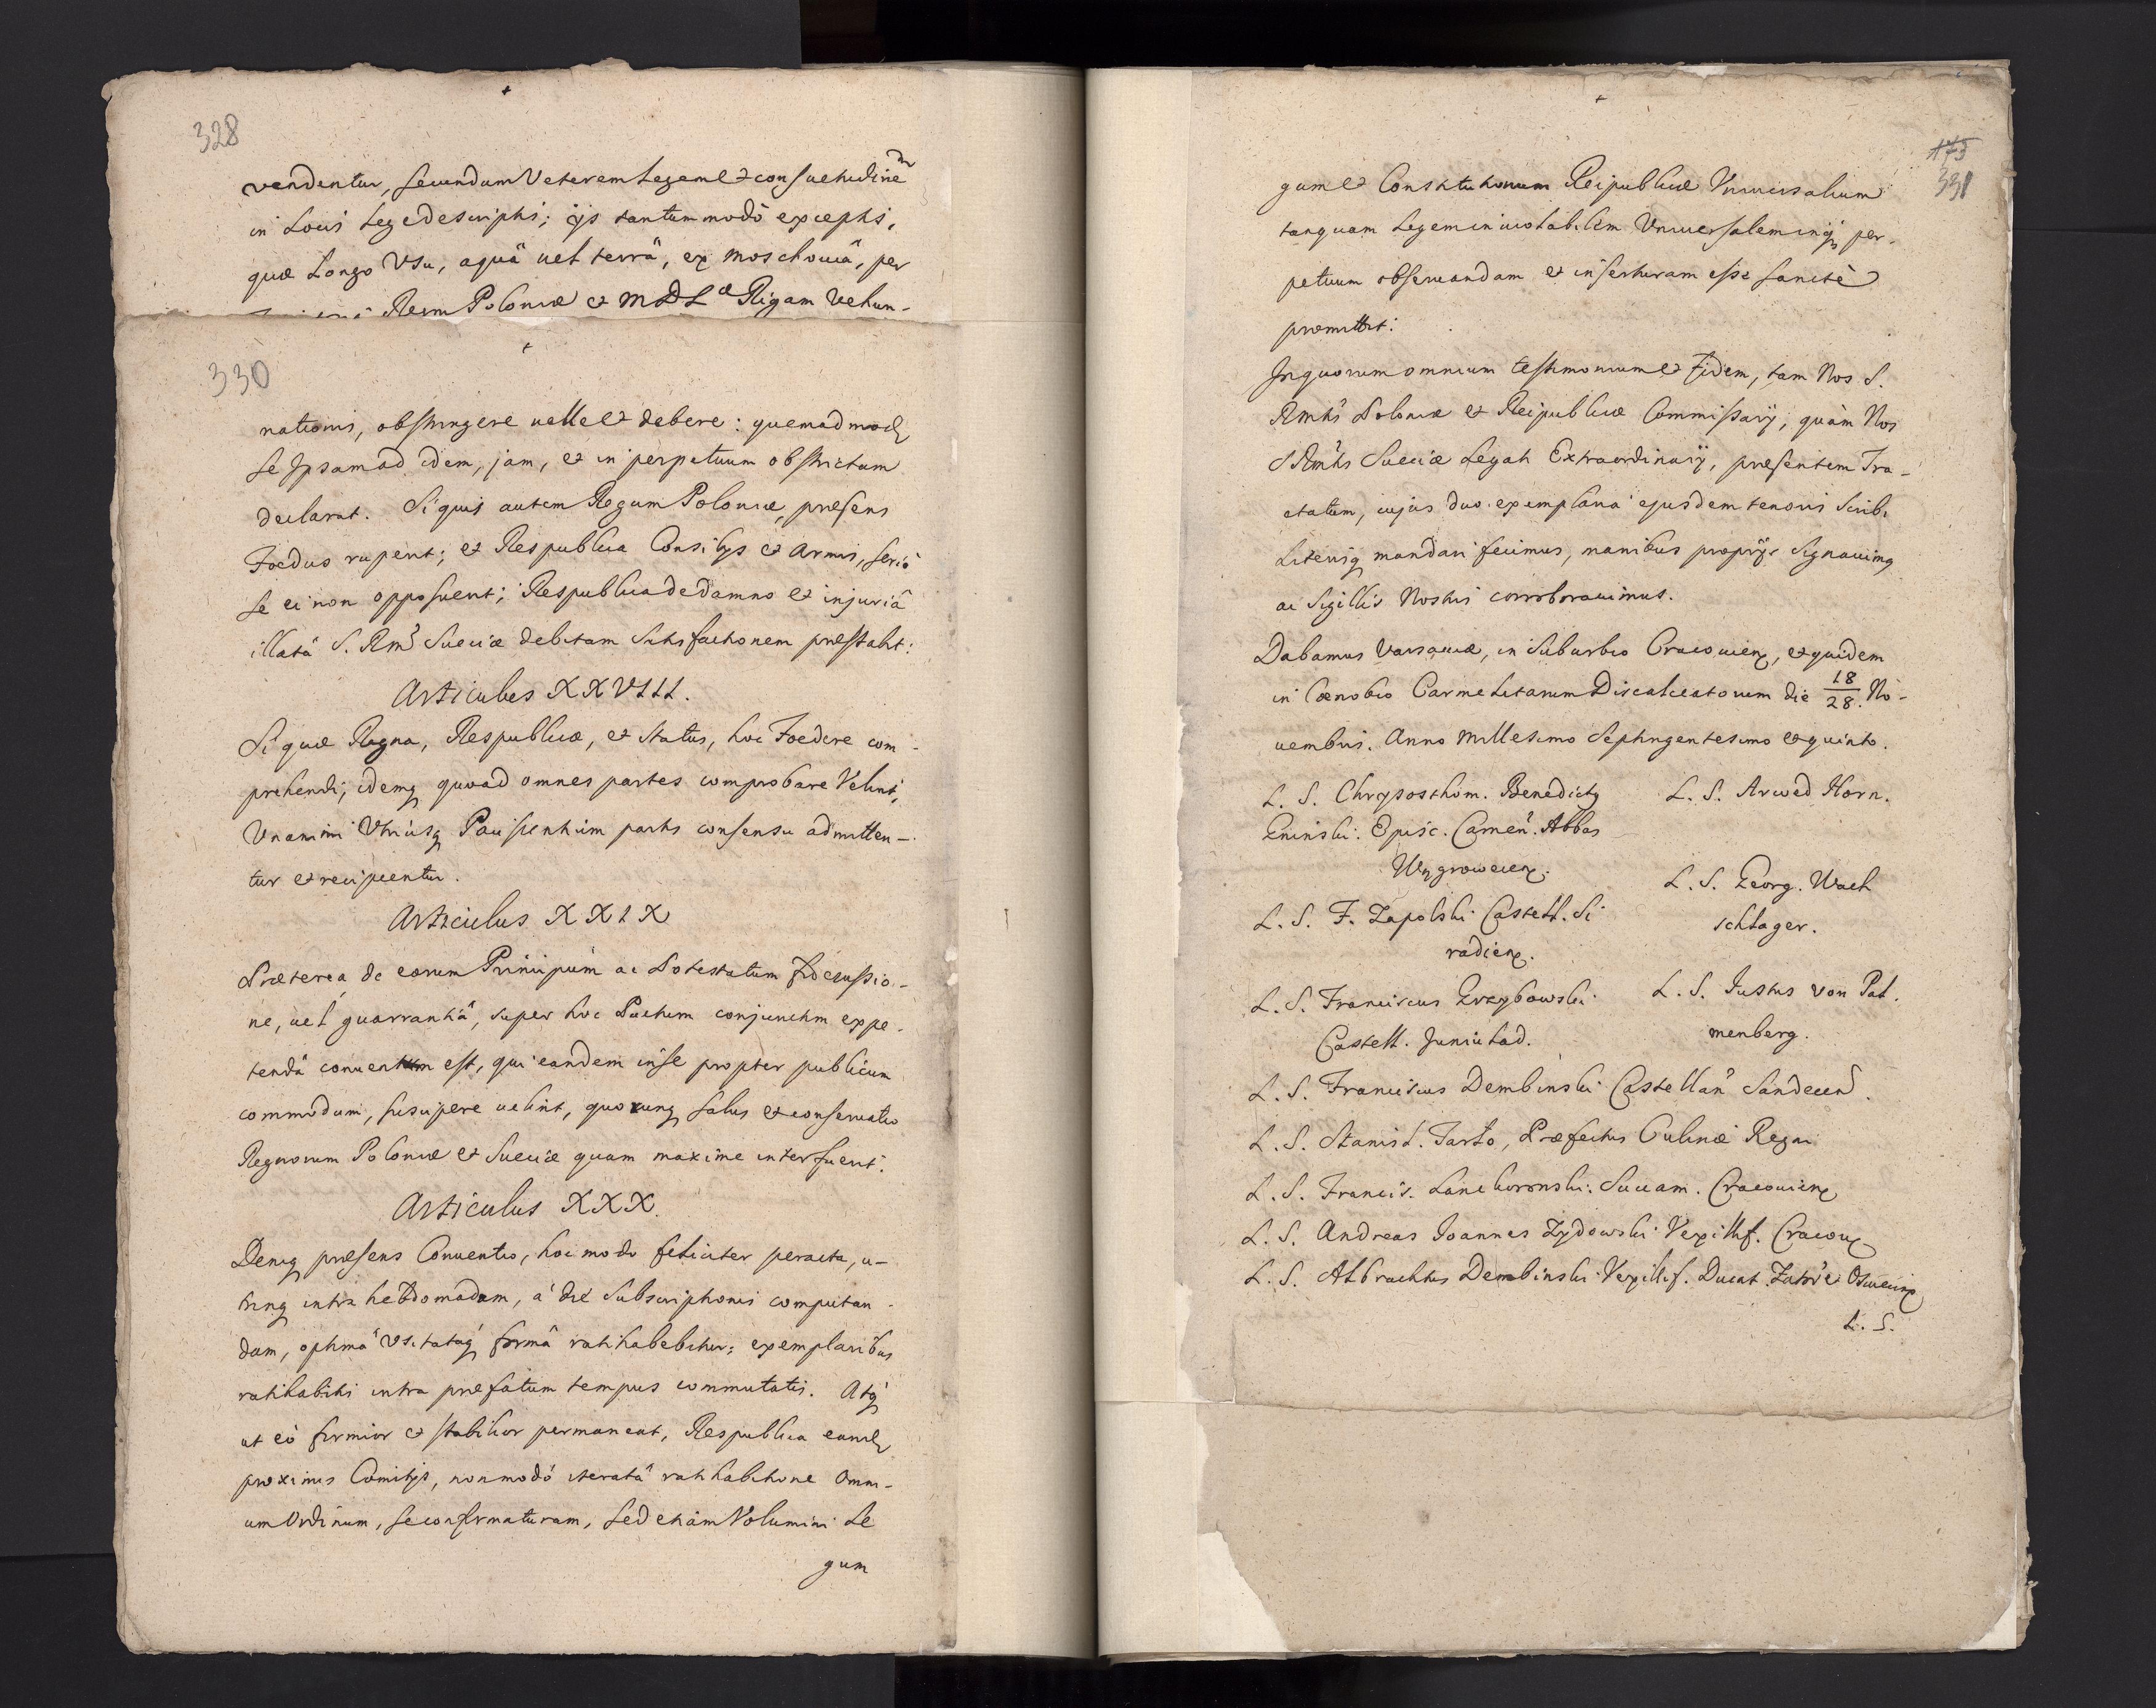 328
vendentur, secundum Veterem Legem et consuetudinem
in Locis Lege descriptis; ijs tantummodò exceptis,
quæ Longo Vsu, aquâ uel terrâ, ex Moschouiâ, per
Regm Poloniæ et M D L Rigam Vehun-
330
nationis, obstringere uelle et debere: quemadmod
se Ipsam ad idem, jam, et in perpetuum obstrictam
declarat. Siquis autem Regum Poloniæ, præsens
Foedus ruperit; et Respublica Consilijs et Armis, seriò
se ei non opposuerit; Respublica de damno et injuriâ
illatâ S. Rmꝫ Sueciæ debitam Satisfactionem præstabit:
Articulus XXVIII.
Si quæ Regna, Respublicæ, et Status, hoc Foedere com-
prehendi; idemq quoad omnes partes comprobare Velint,
Vnanimi Vtriusq Paciscentium partis consensu admitten-
tur et recipientur.
Articulus XXIX
Præterea de eorum Principum ac Potestatum fidejussio-
ne, uel guarrantiâ, super hoc Pactum conjunctim expe-
tendâ conuentum est, qui eandem in se propter publicum
commodum, suscipere uelint, quorumq salus et conseruatio
Regnorum Poloniæ et Sueciæ quam maxime interfuerit.
Articulus XXX.
Deniq præsens Conuentio, hoc modo feliciter peracta, u-
trinq intra hebdomadam, à die Subscriptionis computan-
dam, optimâ Vsitatâq formâ ratihabebitur; exemplaribus
ratihabitis intra præfatum tempus commutatis. Atq
ut eò firmior et stabilior permaneat, Respublica eand
proximis Comitijs, non modò iteratâ ratihabitione Omni-
um Ordinum, se confirmaturam, sed etiam Volumini Le
gum
175
331
gum et Constitutionum Reipublicæ Vniuersalium
tanquam Legem inuiolabilem Vniuersalem inq per-
petuum obseruandam et inserturam esse sanctè
promittit:
In quorum omnium testimonium et Fidem, tam Nos S.
Rmtis Poloniæ et Reipublicæ Commissarij, quàm Nos
S Rmtis Sueciæ Legati Extraordinarij, præsentem Tra-
ctatum, cujus duo exemplaria ejusdem tenoris Scribi
Literisq mandari fecimus, manibus proprijs Signauimq
ac Sigillis Nostris corroborauimus.
Dabamus Varsauiæ, in Suburbio Cracouien, et quidem
in Coenobio Carmelitarum Discalceatorum die 18/28. No-
uembris. Anno Millesimo Septingentesimo et quinto.
L. S. Chrysosthom. Benedictq
Gninski. Episc. Camen. Abbas
Wągrowecien.
L. S. Arwed Horn.
L. S. Georg. Wach
schlager.
L. S. F. Zapolski Castell. Si
radien.
L. S. Franciscus Grzybowski
Castell. Juniulad.
L. S. Justus von Pal.
menberg.
L. S. Franciscus Dembinski Castellan Sandecen.
L. S. Stanisl. Tarło, Præfectus Culinæ Regni
L. S. Francis. Lanckoronski. Succam. Cracouien
L. S. Andreas Joannes Zydowski Vexillif. Cracou
L. S. Albrachtus Dembinski Vexillif. Ducat. Zator. Osuecim
L. S.